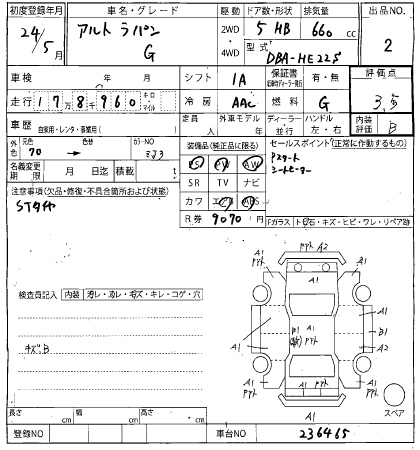 初度登録年月 車名・グレード 駆動 ドア数・形状 排気量 出品NO.
24/5月 アルト ラパン G 2WD 4WD 5 HB 660 cc 2
型式 DBA-HE22S
車検 年 月 シフト IA 保証書 有・無 評価点
走行 178960 キロ マイル 冷房 AAC 燃料 G 3.5
車歴 自家用・レンタ・事業用( ) 定員 人 外車モデル 年 ディーラー 並行 ハンドル 左・右 内装評価 B
外色 元色 70 → 色替 カラーNO ZJ3
装備品(純正品に限る) セールスポイント(正常に作動するもの)
名義変更期限 月 日迄 積載 t
PS PW AW
Pスタート
シートヒーター
注意事項(欠品・修復・不具合箇所および状態)
SR TV ナビ
STタイヤ
カワ エアB ABS
R券 9070 円
Fガラス トビ石・キズ・ヒビ・ワレ・リペア跡
検査員記入 内装 汚レ・ヌレ・キズ・キレ・コゲ・穴
キズB
A1 A2
A1 A1
A1
B1
A1 A1
A2
A1 A1
A1
スペア
長さ cm 幅 cm 高さ cm
登録NO 車台NO 236465